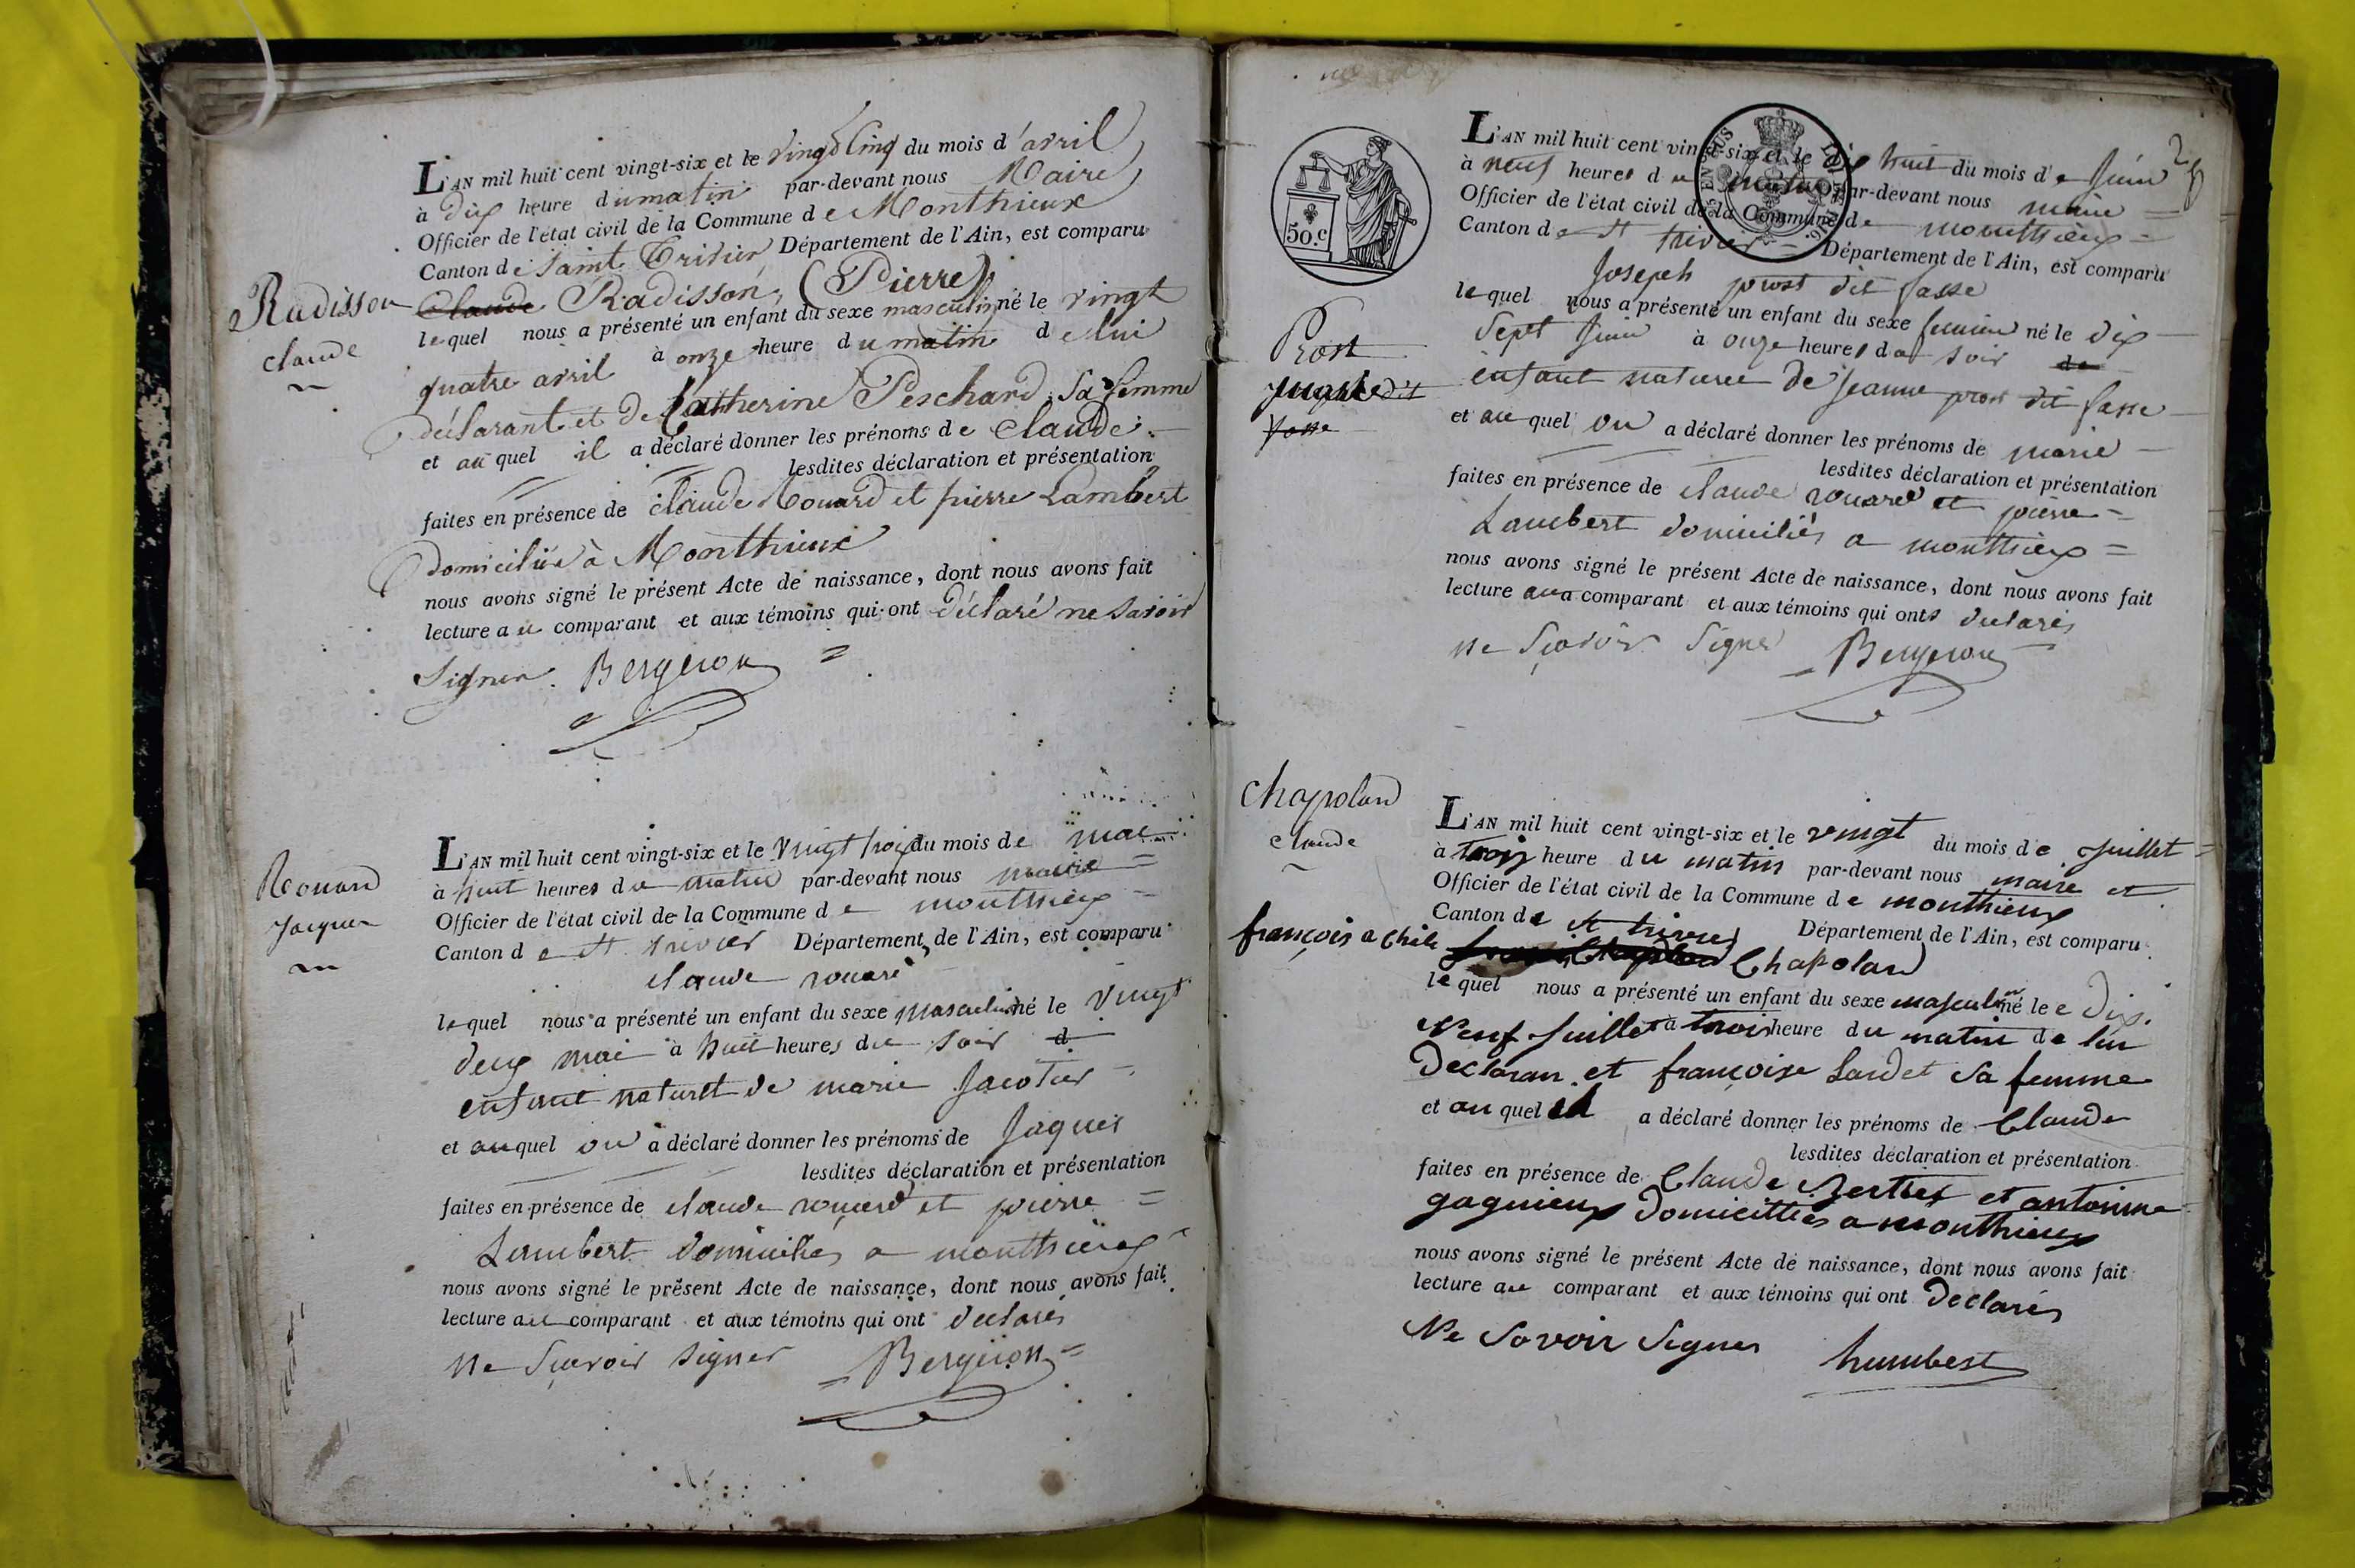 L'AN mil huit cent vingt-six et le vingt Cinq du mois d'avril
à dix heure du matin par-devant nous Maire
Officier de l'état civil de la Commune de Monthieux
Canton de Saint Trivier Département de l'Ain, est comparu
Radisson
claude
Claude Radisson, (Pierre)
lequel nous a présenté un enfant du sexe masculin né le vingt
quatre avril à onze heure du matin de lui
déclarant et de Catherine Peschard sa femme
et auquel il a déclaré donner les prénoms de Claude
lesdites déclaration et présentation
faites en présence de Claude Rouard et pierre Lambert
domiciliés à Monthieux
nous avons signé le présent Acte de naissance, dont nous avons fait
lecture au comparant et aux témoins qui ont déclaré ne savoir
signer. Bergeron
Rouard
Jacques
L'AN mil huit cent vingt-six et le vingt trois du mois de mai
à huit heures du matin par-devant nous maire
Officier de l'état civil de la Commune de monthieux
Canton de st trivier Département de l'Ain, est comparu
claude rouard
lequel nous a présenté un enfant du sexe masculin né le vingt
deux mai à huit heures du soir d
enfant naturel de marie Jacotier
et auquel on a déclaré donner les prénoms de Jaques
lesdites déclaration et présentation
faites en présence de claude rouard et pierre
Lambert domiciliés a monthieux
nous avons signé le présent Acte de naissance, dont nous avons fait
lecture au comparant et aux témoins qui ont declarés
ne Scavoir signer Bergeron
50.c
L'AN mil huit cent vingt-six et le dix huit du mois de Juin
à neuf heures du matin par-devant nous maire
Officier de l'état civil de la Commune de monthieux
Canton de st trivier Département de l'Ain, est comparu
Joseph prost dit fasse
lequel nous a présenté un enfant du sexe feminin né le dix
Prost
marie dit
fasse
Sept Juin à onze heures du soir de
enfant naturel de Jeanne prost dit fasse
et auquel on a déclaré donner les prénoms de marie
lesdites déclaration et présentation
faites en présence de claude rouard et pierre
Lambert domiciliés a monthieux
nous avons signé le présent Acte de naissance, dont nous avons fait
lecture au comparant et aux témoins qui ont declarés
ne Scavoir Signer Bergeron
Chapolard
claude
L'AN mil huit cent vingt-six et le vingt du mois de Juillet
à trois heure du matin par-devant nous maire et
Officier de l'état civil de la Commune de monthieux
Canton de st trivier Département de l'Ain, est comparu
françois Chapolard
lequel nous a présenté un enfant du sexe masculin né le dix
Neuf Juillet à trois heure du matin de lui
Declaran et françoise Lardet sa femme
et au quel il a déclaré donner les prénoms de Claude
lesdites déclaration et présentation
faites en présence de Claude et antoinne
gagnieux Domicilliés a monthieux
nous avons signé le présent Acte de naissance, dont nous avons fait
lecture au comparant et aux témoins qui ont Declarés
Ne Savoir Signer humbert